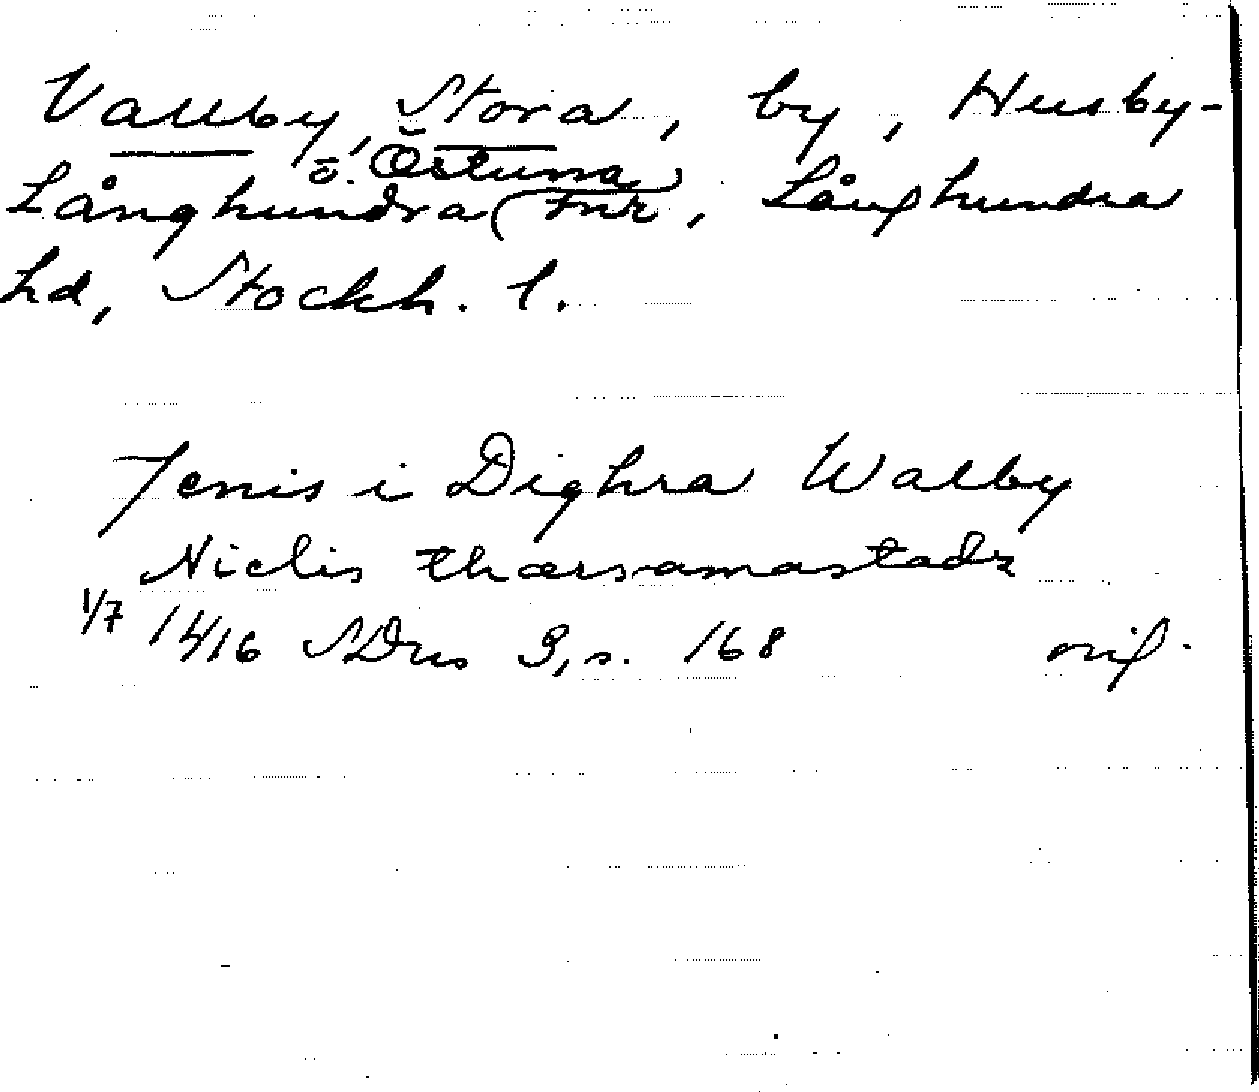 Vallby, Stora, by, Husby-
o. Östuna
Långhundra snr, Långhundra
hd, Stockh. l.
Jenis i Dighra Walby
Niclis thærsamastadz
1/7 1416 SDns 3, s. 168 orig.